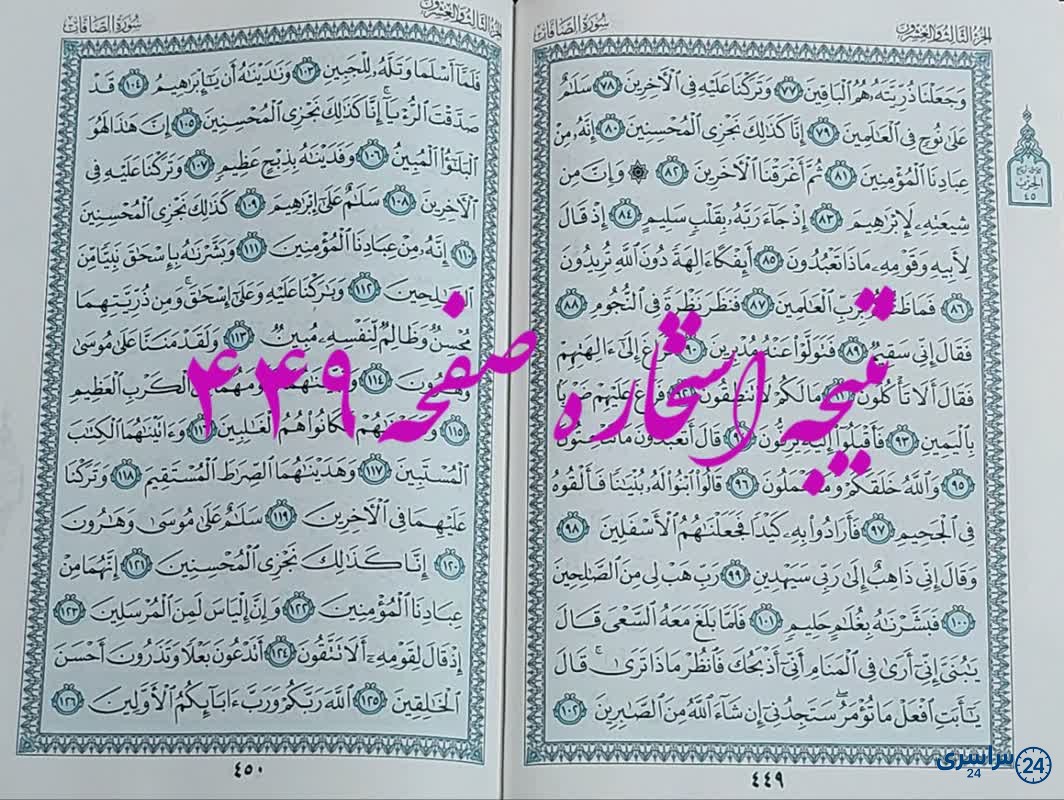 سُورَةُ الصَّافَّاتِ
الجُزْءُ الثَّالِثُ وَالعِشْرُونَ
وَجَعَلْنَا ذُرِّيَّتَهُۥ هُمُ ٱلْبَاقِينَ ٧٧ وَتَرَكْنَا عَلَيْهِ فِى ٱلْـَٔاخِرِينَ ٧٨ سَلَٰمٌ
عَلَىٰ نُوحٍ فِى ٱلْعَٰلَمِينَ ٧٩ إِنَّا كَذَٰلِكَ نَجْزِى ٱلْمُحْسِنِينَ ٨٠ إِنَّهُۥ مِنْ
عِبَادِنَا ٱلْمُؤْمِنِينَ ٨١ ثُمَّ أَغْرَقْنَا ٱلْـَٔاخَرِينَ ٨٢ ۞ وَإِنَّ مِن
شِيعَتِهِۦ لَإِبْرَٰهِيمَ ٨٣ إِذْ جَآءَ رَبَّهُۥ بِقَلْبٍ سَلِيمٍ ٨٤ إِذْ قَالَ
لِأَبِيهِ وَقَوْمِهِۦ مَاذَا تَعْبُدُونَ ٨٥ أَئِفْكًا ءَالِهَةً دُونَ ٱللَّهِ تُرِيدُونَ
٨٦ فَمَا ظَنُّكُم بِرَبِّ ٱلْعَٰلَمِينَ ٨٧ فَنَظَرَ نَظْرَةً فِى ٱلنُّجُومِ ٨٨
فَقَالَ إِنِّى سَقِيمٌ ٨٩ فَتَوَلَّوْا۟ عَنْهُ مُدْبِرِينَ ٩٠ فَرَاغَ إِلَىٰٓ ءَالِهَتِهِمْ
فَقَالَ أَلَا تَأْكُلُونَ ٩١ مَا لَكُمْ لَا تَنطِقُونَ ٩٢ فَرَاغَ عَلَيْهِمْ ضَرْبًۢا
بِٱلْيَمِينِ ٩٣ فَأَقْبَلُوٓا۟ إِلَيْهِ يَزِفُّونَ ٩٤ قَالَ أَتَعْبُدُونَ مَا تَنْحِتُونَ
٩٥ وَٱللَّهُ خَلَقَكُمْ وَمَا تَعْمَلُونَ ٩٦ قَالُوا۟ ٱبْنُوا۟ لَهُۥ بُنْيَٰنًا فَأَلْقُوهُ
فِى ٱلْجَحِيمِ ٩٧ فَأَرَادُوا۟ بِهِۦ كَيْدًا فَجَعَلْنَٰهُمُ ٱلْأَسْفَلِينَ ٩٨
وَقَالَ إِنِّى ذَاهِبٌ إِلَىٰ رَبِّى سَيَهْدِينِ ٩٩ رَبِّ هَبْ لِى مِنَ ٱلصَّٰلِحِينَ
١٠٠ فَبَشَّرْنَٰهُ بِغُلَٰمٍ حَلِيمٍ ١٠١ فَلَمَّا بَلَغَ مَعَهُ ٱلسَّعْىَ قَالَ
يَٰبُنَىَّ إِنِّىٓ أَرَىٰ فِى ٱلْمَنَامِ أَنِّىٓ أَذْبَحُكَ فَٱنظُرْ مَاذَا تَرَىٰ ۚ قَالَ
يَٰٓأَبَتِ ٱفْعَلْ مَا تُؤْمَرُ ۖ سَتَجِدُنِىٓ إِن شَآءَ ٱللَّهُ مِنَ ٱلصَّٰبِرِينَ ١٠٢
٤٤٩
الحزب
٤٥
سُورَةُ الصَّافَّاتِ
الجُزْءُ الثَّالِثُ وَالعِشْرُونَ
فَلَمَّآ أَسْلَمَا وَتَلَّهُۥ لِلْجَبِينِ ١٠٣ وَنَٰدَيْنَٰهُ أَن يَٰٓإِبْرَٰهِيمُ ١٠٤ قَدْ
صَدَّقْتَ ٱلرُّءْيَآ ۚ إِنَّا كَذَٰلِكَ نَجْزِى ٱلْمُحْسِنِينَ ١٠٥ إِنَّ هَٰذَا لَهُوَ
ٱلْبَلَٰٓؤُا۟ ٱلْمُبِينُ ١٠٦ وَفَدَيْنَٰهُ بِذِبْحٍ عَظِيمٍ ١٠٧ وَتَرَكْنَا عَلَيْهِ فِى
ٱلْـَٔاخِرِينَ ١٠٨ سَلَٰمٌ عَلَىٰٓ إِبْرَٰهِيمَ ١٠٩ كَذَٰلِكَ نَجْزِى ٱلْمُحْسِنِينَ
١١٠ إِنَّهُۥ مِنْ عِبَادِنَا ٱلْمُؤْمِنِينَ ١١١ وَبَشَّرْنَٰهُ بِإِسْحَٰقَ نَبِيًّا مِّنَ
ٱلصَّٰلِحِينَ ١١٢ وَبَٰرَكْنَا عَلَيْهِ وَعَلَىٰٓ إِسْحَٰقَ ۚ وَمِن ذُرِّيَّتِهِمَا
مُحْسِنٌ وَظَالِمٌ لِّنَفْسِهِۦ مُبِينٌ ١١٣ وَلَقَدْ مَنَنَّا عَلَىٰ مُوسَىٰ
وَهَٰرُونَ ١١٤ وَنَجَّيْنَٰهُمَا وَقَوْمَهُمَا مِنَ ٱلْكَرْبِ ٱلْعَظِيمِ
١١٥ وَنَصَرْنَٰهُمْ فَكَانُوا۟ هُمُ ٱلْغَٰلِبِينَ ١١٦ وَءَاتَيْنَٰهُمَا ٱلْكِتَٰبَ
ٱلْمُسْتَبِينَ ١١٧ وَهَدَيْنَٰهُمَا ٱلصِّرَٰطَ ٱلْمُسْتَقِيمَ ١١٨ وَتَرَكْنَا
عَلَيْهِمَا فِى ٱلْـَٔاخِرِينَ ١١٩ سَلَٰمٌ عَلَىٰ مُوسَىٰ وَهَٰرُونَ
١٢٠ إِنَّا كَذَٰلِكَ نَجْزِى ٱلْمُحْسِنِينَ ١٢١ إِنَّهُمَا مِنْ
عِبَادِنَا ٱلْمُؤْمِنِينَ ١٢٢ وَإِنَّ إِلْيَاسَ لَمِنَ ٱلْمُرْسَلِينَ ١٢٣
إِذْ قَالَ لِقَوْمِهِۦٓ أَلَا تَتَّقُونَ ١٢٤ أَتَدْعُونَ بَعْلًا وَتَذَرُونَ أَحْسَنَ
ٱلْخَٰلِقِينَ ١٢٥ ٱللَّهَ رَبَّكُمْ وَرَبَّ ءَابَآئِكُمُ ٱلْأَوَّلِينَ ١٢٦
٤٥٠
نتیجه استخاره صفحه ۴۴۹
سراسری 24
24